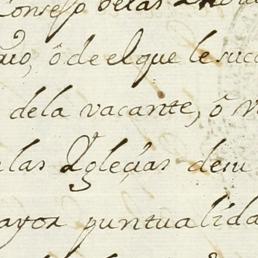 Consejo de las
ô de el que le suc
de la vacante, ô
las Yglecias de su
ayor puntualida